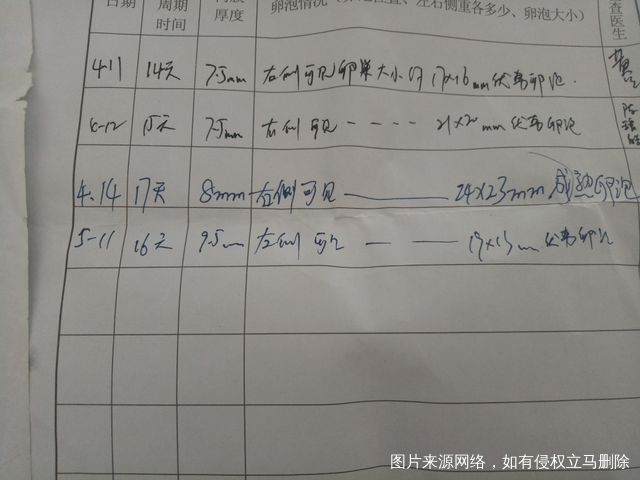 日期 周期 内膜 卵泡情况（卵泡位置、左右侧重各多少、卵泡大小） 查医生
时间 厚度
4-11 14天 7.5mm 右侧可见卵巢大小约17×16mm优势卵泡.
4-12 15天 7.5mm 右侧可见 ---- 21×20mm优势卵泡
4.14 17天 8mm 右侧可见 —— 24×23mm成熟卵泡
5-11 16天 9.5mm 左侧可见 — —— 19×15mm优势卵泡
图片来源网络，如有侵权立马删除